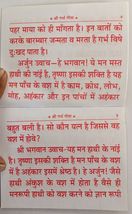 श्री गर्भ गीता
पहर माया की ही मांगता है। इन बातों को
करके बारम्बार जन्मता व मरता है गर्भ विषे
दुःख पाता है।
अर्जुन उवाच–हे भगवान! ये मन मस्त
हाथी की नाई है, तृष्णा इसकी शक्ति है यह
मन पांच के वश में है काम, क्रोध, लोभ,
मोह, अहंकार और इन पांचों में अहंकार
श्री गर्भ गीता
बहुत बली है। सो कौन यत्न है जिससे वश
में होवे?
श्री भगवान उवाच–यह मन हाथी की नाई
है। तृष्णा इसकी शक्ति है मन पाँच के वश
में है अहंकार इसमें श्रेष्ठ है। अर्जुन! जैसे
हाथी अंकुश के वश में होता है वैसे ही
मनरूपी हाथी को वश करने को ज्ञान रूपी